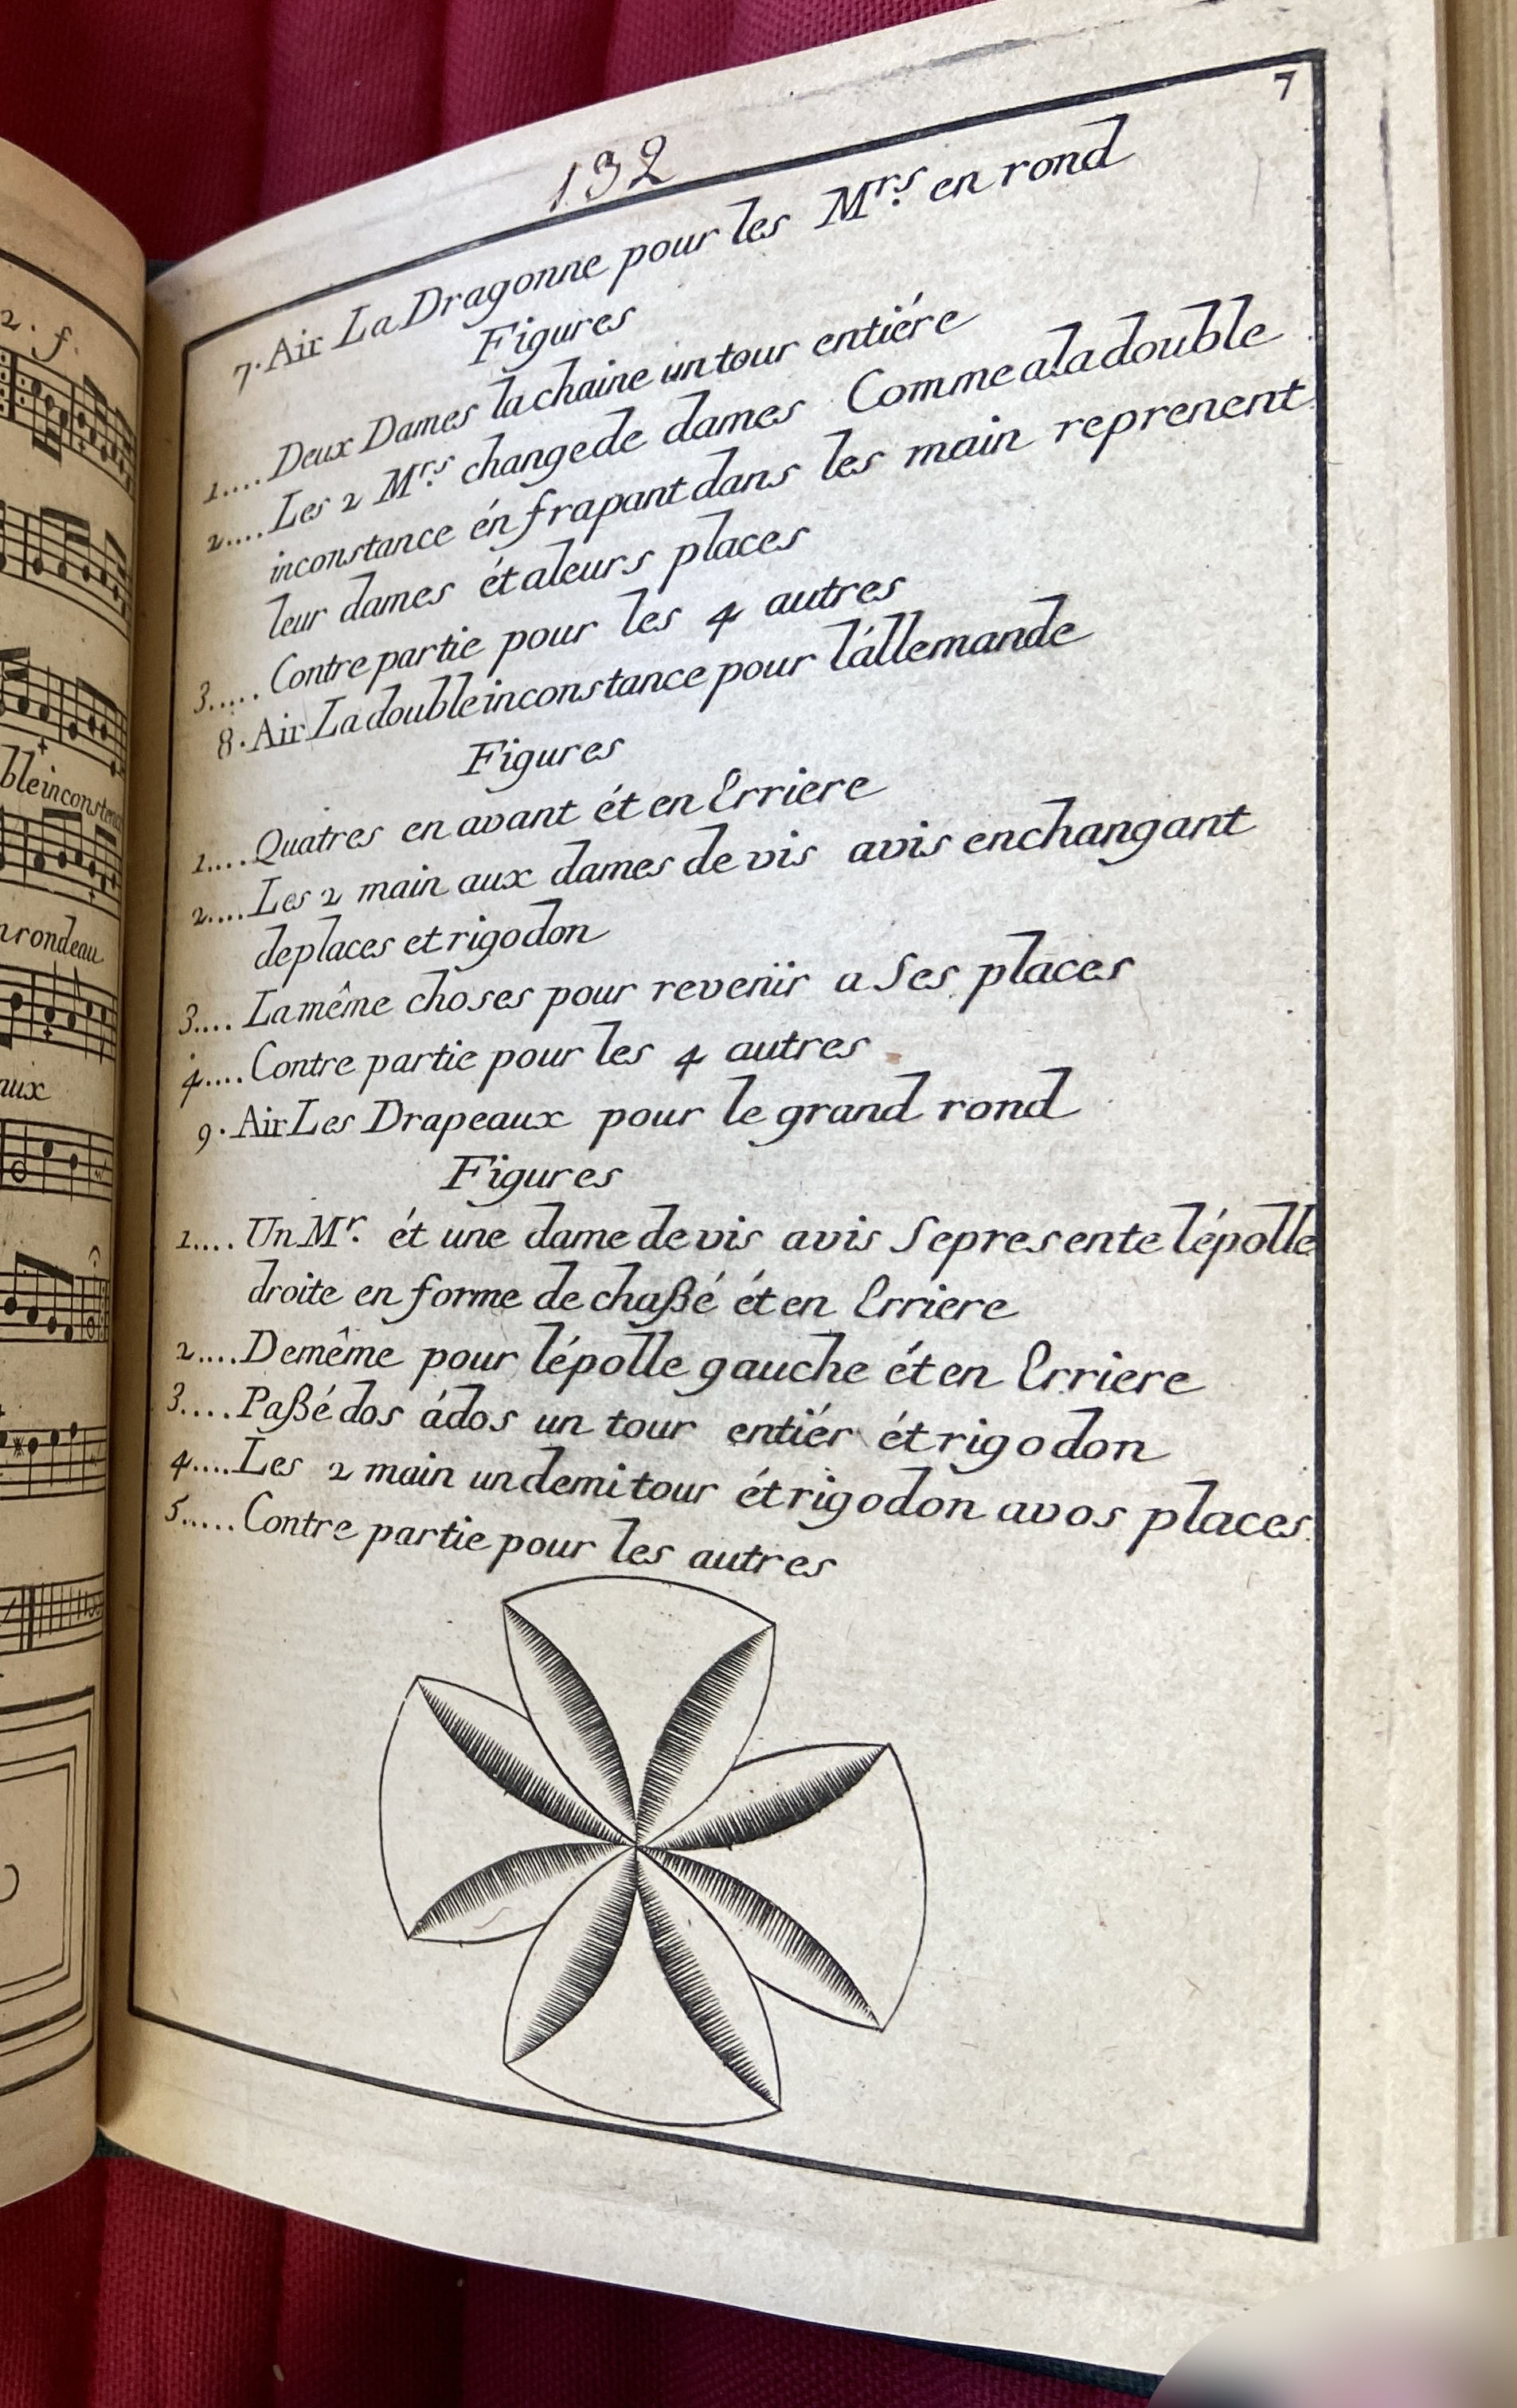 2. f.
bleinconstenc
nrondeau
aux
7
132
7. Air La Dragonne pour les Mrs. en rond
Figures
1.... Deux Dames la chaine un tour entiére
2.... Les 2 Mrs. change de dames Comme a la double
inconstance én frapant dans les main reprenent
leur dames ét a leurs places
3..... Contre partie pour les 4 autres
8. Air La double inconstance pour l'állemande
Figures
1.... Quatres en avant ét en Erriere
2.... Les 2 main aux dames de vis avis en changant
de places et rigodon
3.... La même choses pour revenir a Ses places
4.... Contre partie pour les 4 autres
9. Air Les Drapeaux pour le grand rond
Figures
1.... Un Mr. ét une dame de vis avis Se presente lépolle
droite en forme de chaßé ét en Erriere
2.... De même pour lépolle gauche ét en Erriere
3.... Paßé dos á dos un tour entiér ét rigodon
4.... Les 2 main un demi tour ét rigodon a vos places
5..... Contre partie pour les autres